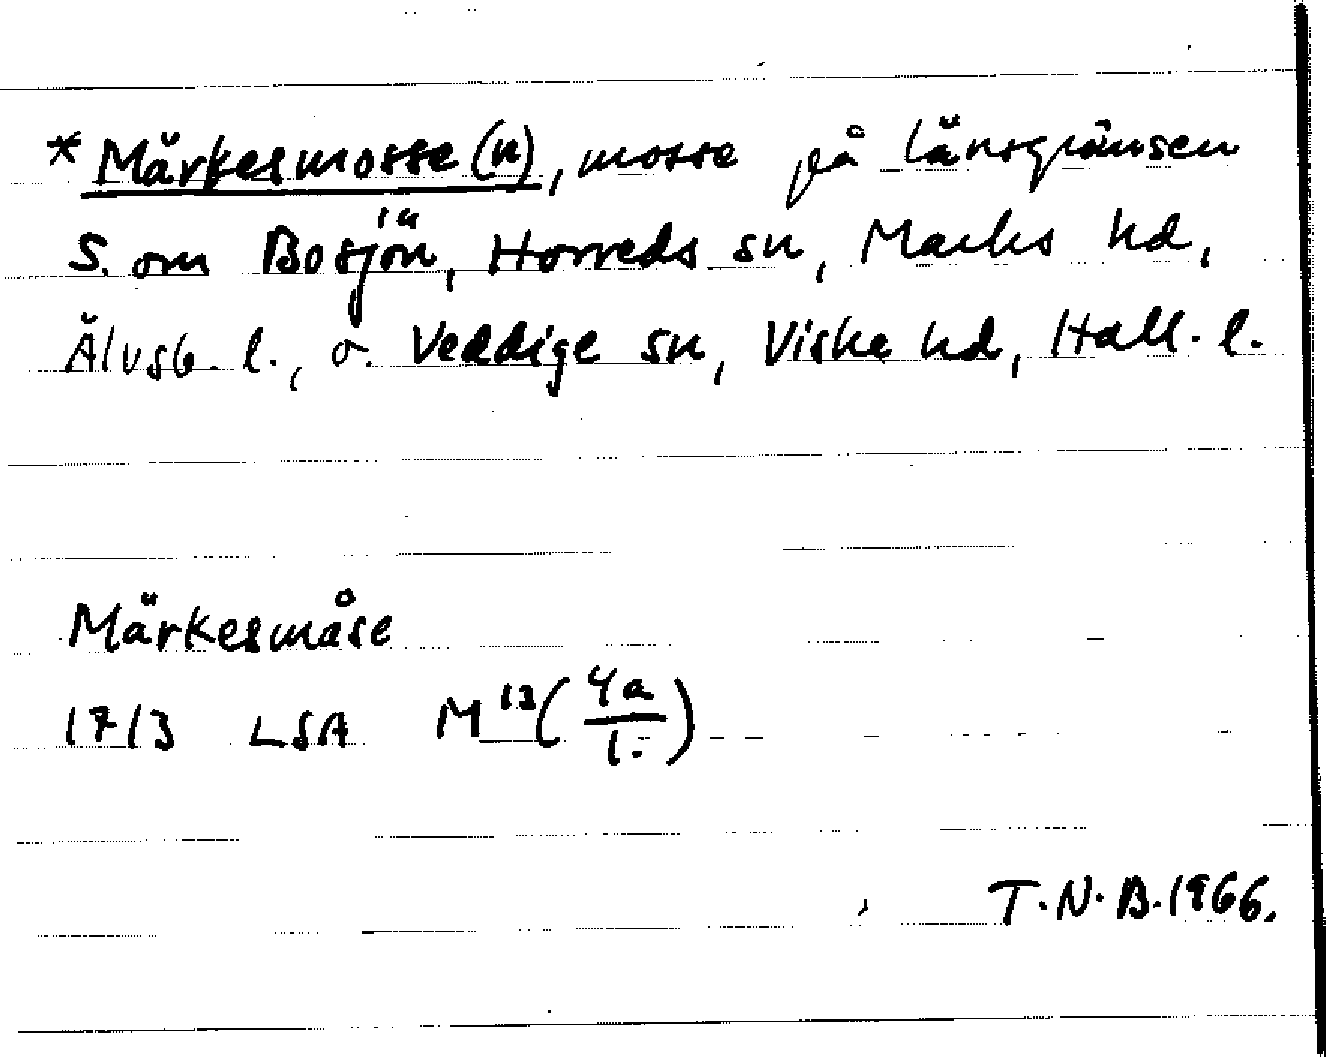 *Märkesmosse(n), mosse på länsgränsen
S. om Bosjön, Horreds sn, Marks hd,
Älvsb. l., o. Veddige sn, Viske hd, Hall. l.
Märkesmåse
1713 LSA M¹³(4a/1:)
T.N.B.1966.